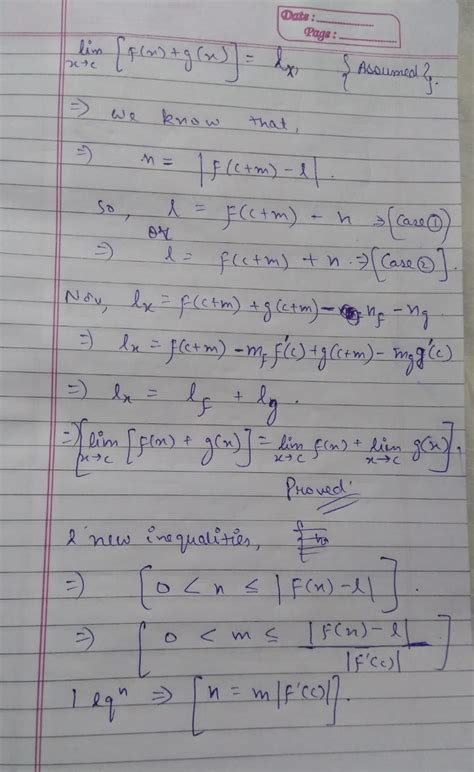 Date: ______
Page: ______
lim x→c [f(x) + g(x)] = lx, {Assumed}.
⇒ we know that,
⇒ n = |f(c+m) - l|.
So, l = f(c+m) - n ⇒ [Case ①]
or
⇒ l = f(c+m) + n ⇒ [Case ②].
Now, lx = f(c+m) + g(c+m) - nf - ng
⇒ lx = f(c+m) - mf f'(c) + g(c+m) - mg g'(c)
⇒ lx = lf + lg.
⇒ [lim x→c [f(x) + g(x)] = lim x→c f(x) + lim x→c g(x)].
Proved.
2 new inequalities,
⇒ [0 < n ≤ |f(x) - l|].
⇒ [0 < m ≤ |f(x) - l| / |f'(c)|]
1 eqⁿ ⇒ [n = m|f'(c)|].